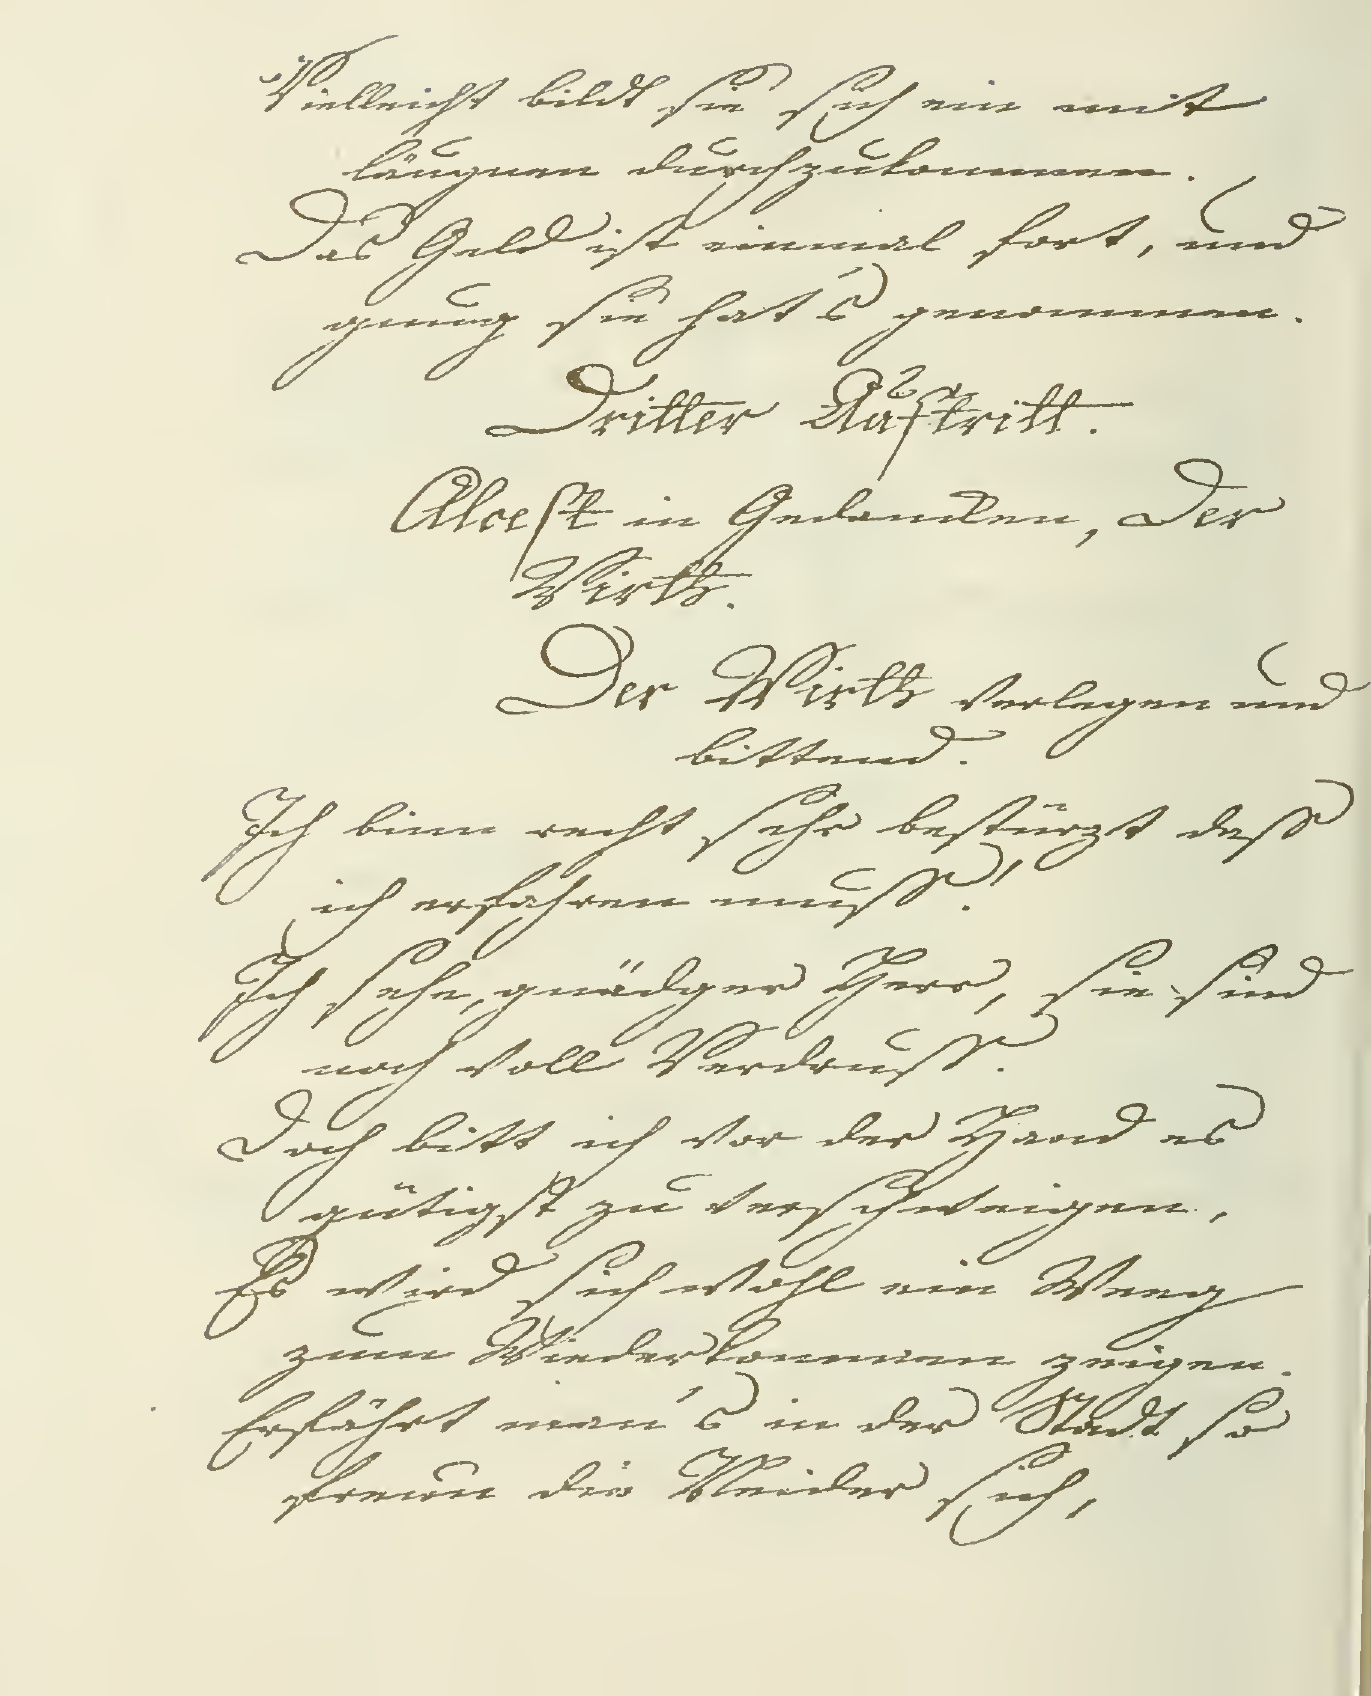 Vielleicht bildt sie sich ein mit
läugnen durchzukommen.
Das Geld ist einmal fort, und
genug sie hat's genommen.
Dritter Auftritt.
Alcest in Gedancken, Der
Wirth.
Der Wirth verlegen und
bittend.
Ich binn recht sehr bestürzt dass
ich erfahren muss!
Ich sehe, gnädger Herr, sie sind
noch voll Verdruss.
Doch bitt ich vor der Hand es
gütigst zu verschweigen,
Es wird sich wohl ein Weeg
zum Wiederkommen zeigen.
Erfährt man's in der Stadt so
freuen die Neider sich,